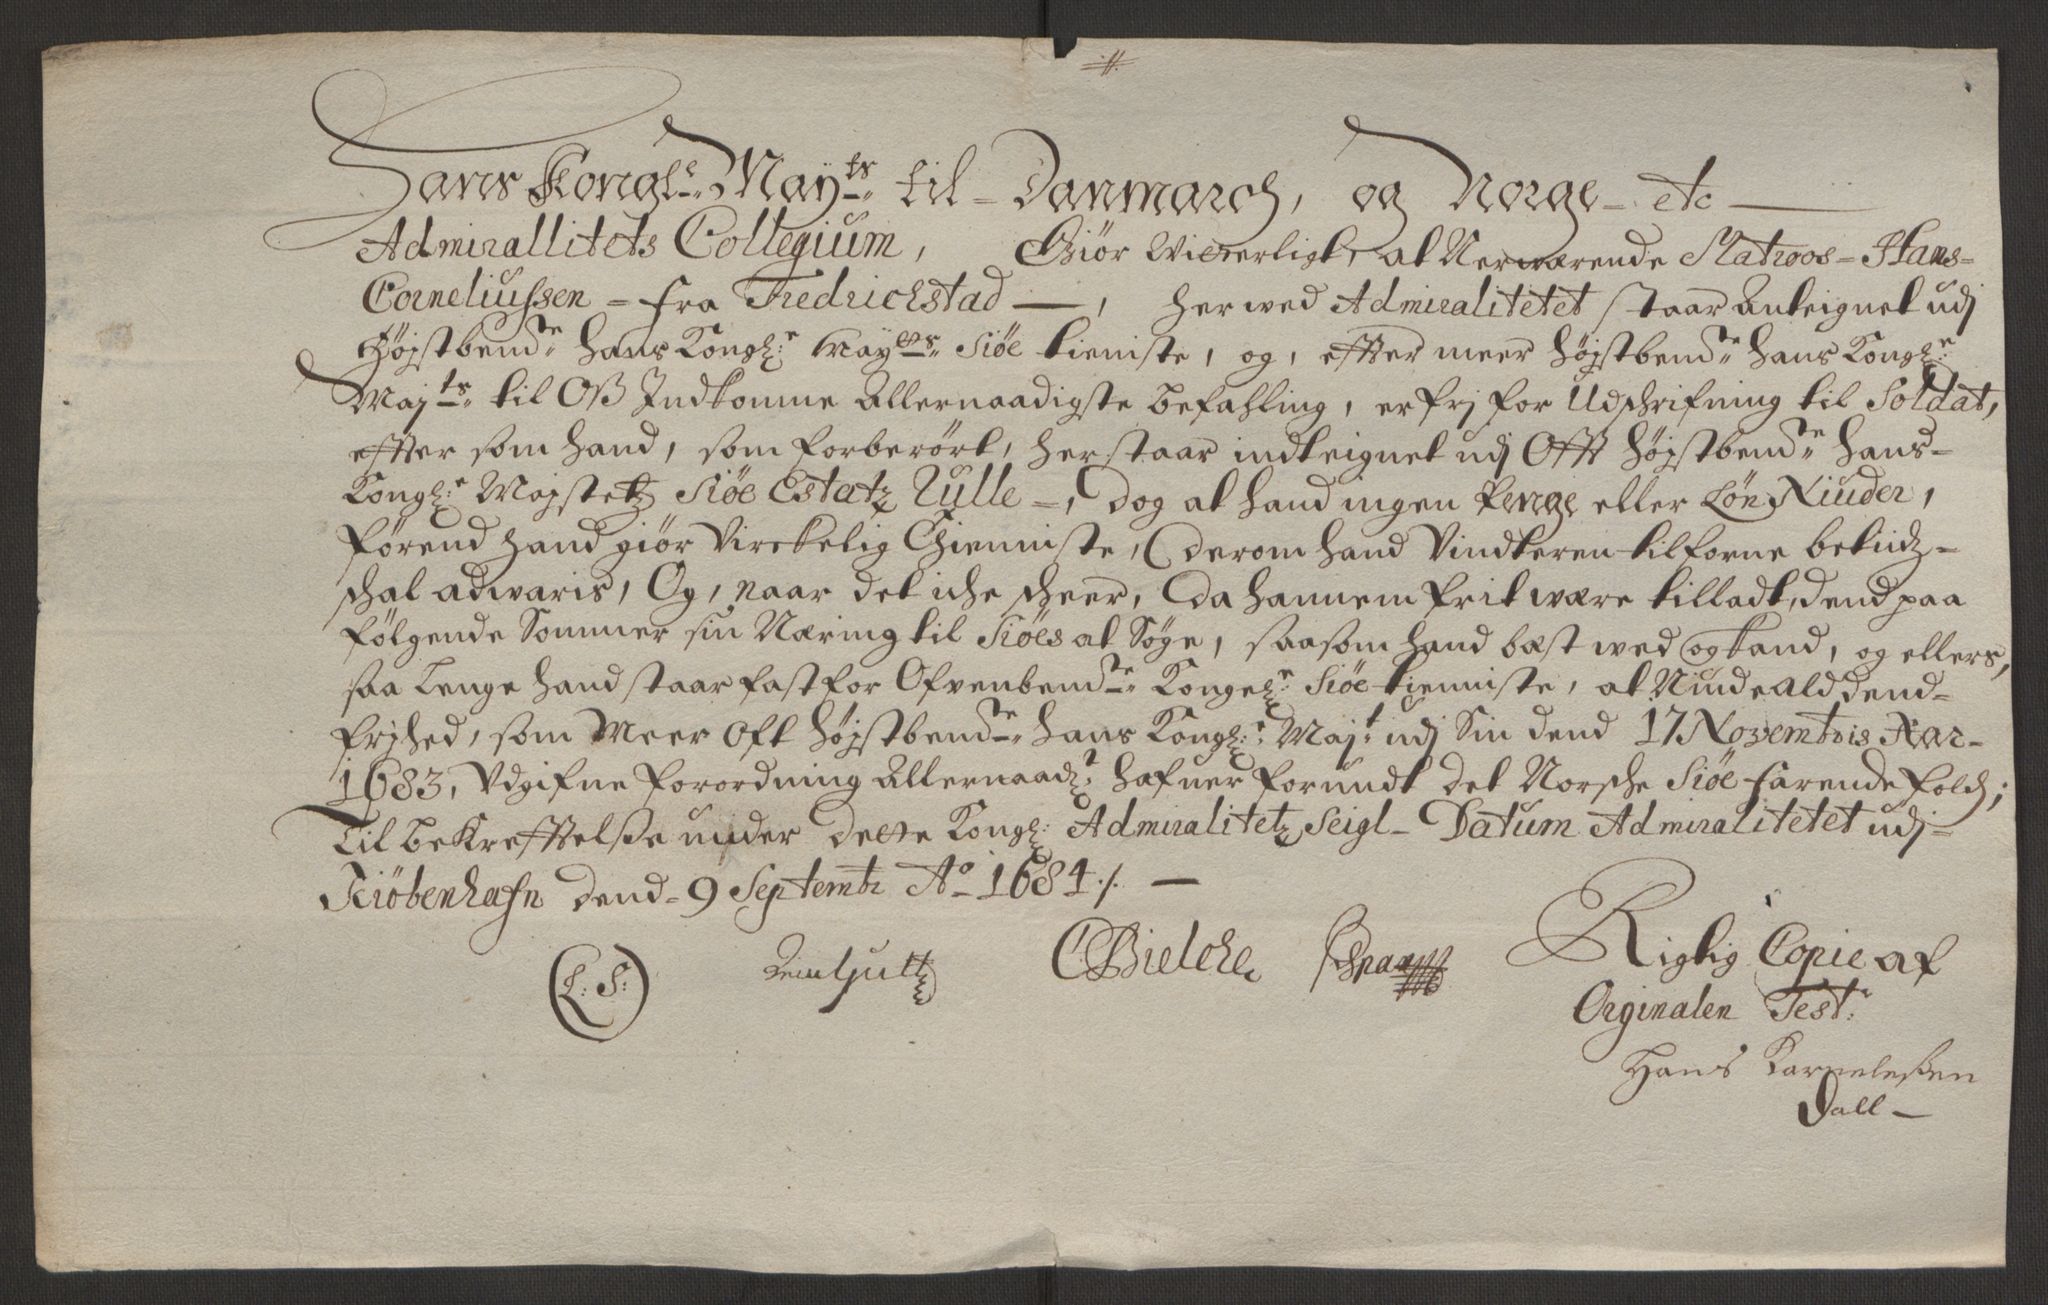 Hans Kongl: May:ts til Danmarch, og Norge etc
Admirallitets Collegium, Giör Witterligt, at Nerwærende Matroos Hans
Corneliussen fra Fredrichstad, her wed Admiralitetet staar Anteignet udj
Højstbend:te hans Kongl: May:ts Siöe tieniste, og, effter meer højstbend:te hans Kongl:
Maj:ts til Oß Indkomne Allernaadigste befahling, er frj for Udschrifning til Soldat,
effter som hand, som forberört, her staar indteignet udj Offt højstbend:te hans
Kongl: Majstetz Siöe Estatz Rulle, Dog at hand ingen Penge eller Lön Niuder,
förend hand giör Virckelig Thienniste, (derom hand Vindteren tilforne betidz
schal adwaris, Og, naar det iche scheer, da hannem frit være tilladt, dend paa
fölgende Sommer sin Næring til Siöes at Söge, saasom hand bæst wed og kand, og ellers,
saa lenge hand staar fast for Ofvenbend:te Kongel: Siöe tienniste, at Niude ald dend
frjhed, som Meer Oft højstbend:te hans Kongl: Maj:t udj Sin dend 17 Novembris Aar
1683, Udgifne forordning Allernaadl:t hafuer forundt det Norsche Siöe farende folch;
Til bekrefftelsse under dette Kongl: Admiralitetz Seigl Datum Admiralitetet udj
Kiöbenhafn dend 9 Septembr A:o 1684 ./.
(L: S:) CBielche Spann Rigtig Copie af
Orginalen Test:
Hans Karneleßen
Dall